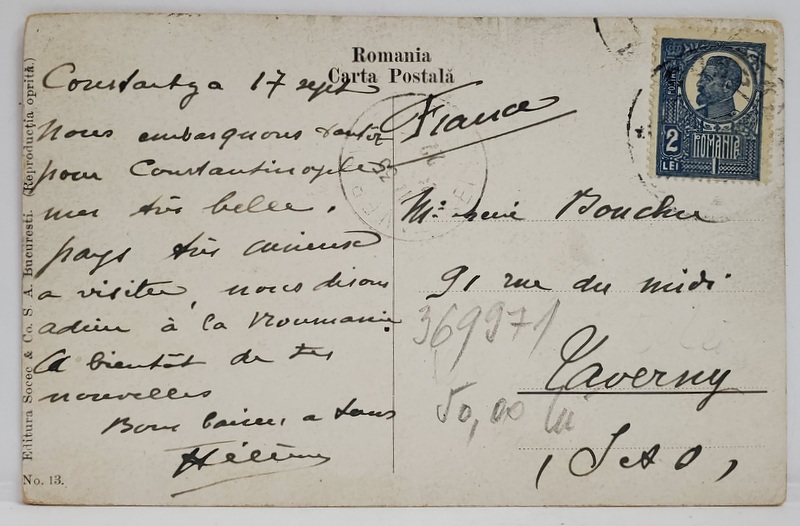 Romania
Carta Postală
Constantza 17 sept
nous embarquons tantôt
pour Constantinople
mer très belle.
pays très curieux
a visiter, nous disons
adieu à la Roumanie.
A bientôt de tes
nouvelles
Bons baisers a tous
Hélène
France
Mr Boucher
91 rue du midi
Taverny
(S & O)
369971
50,00 lei
2
LEI
ROMANIA
Editura Socec & Co. S. A. Bucuresti. (Reproducția oprită.)
No. 13.